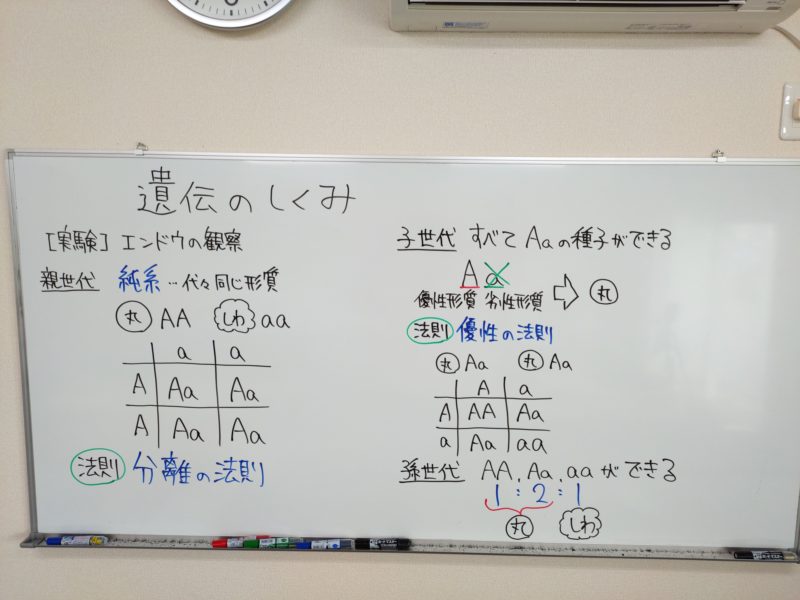 遺伝のしくみ
[実験] エンドウの観察
親世代 純系…代々同じ形質
丸 AA しわ aa
a a
A Aa Aa
A Aa Aa
法則 分離の法則
子世代 すべてAaの種子ができる
A a
優性形質 劣性形質 丸
法則 優性の法則
丸 Aa 丸 Aa
A a
A AA Aa
a Aa aa
孫世代 AA, Aa, aaができる
1 : 2 : 1
丸 しわ